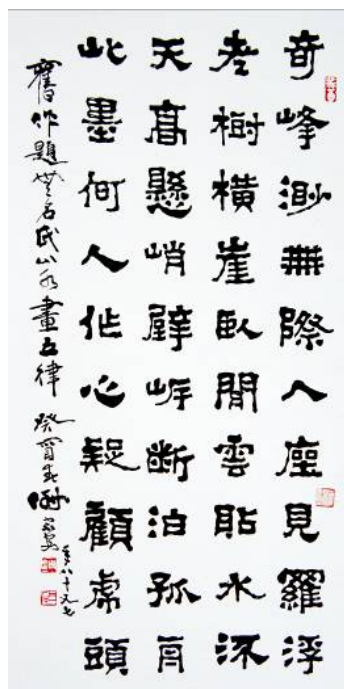 奇峰渺無際入座見羅浮
老樹橫崖臥閒雲貼水流
天高懸峭壁岸斷泊孤舟
此墨何人作心疑顧虎頭
舊作題無名氏山水畫五律 癸酉春 年八十又七